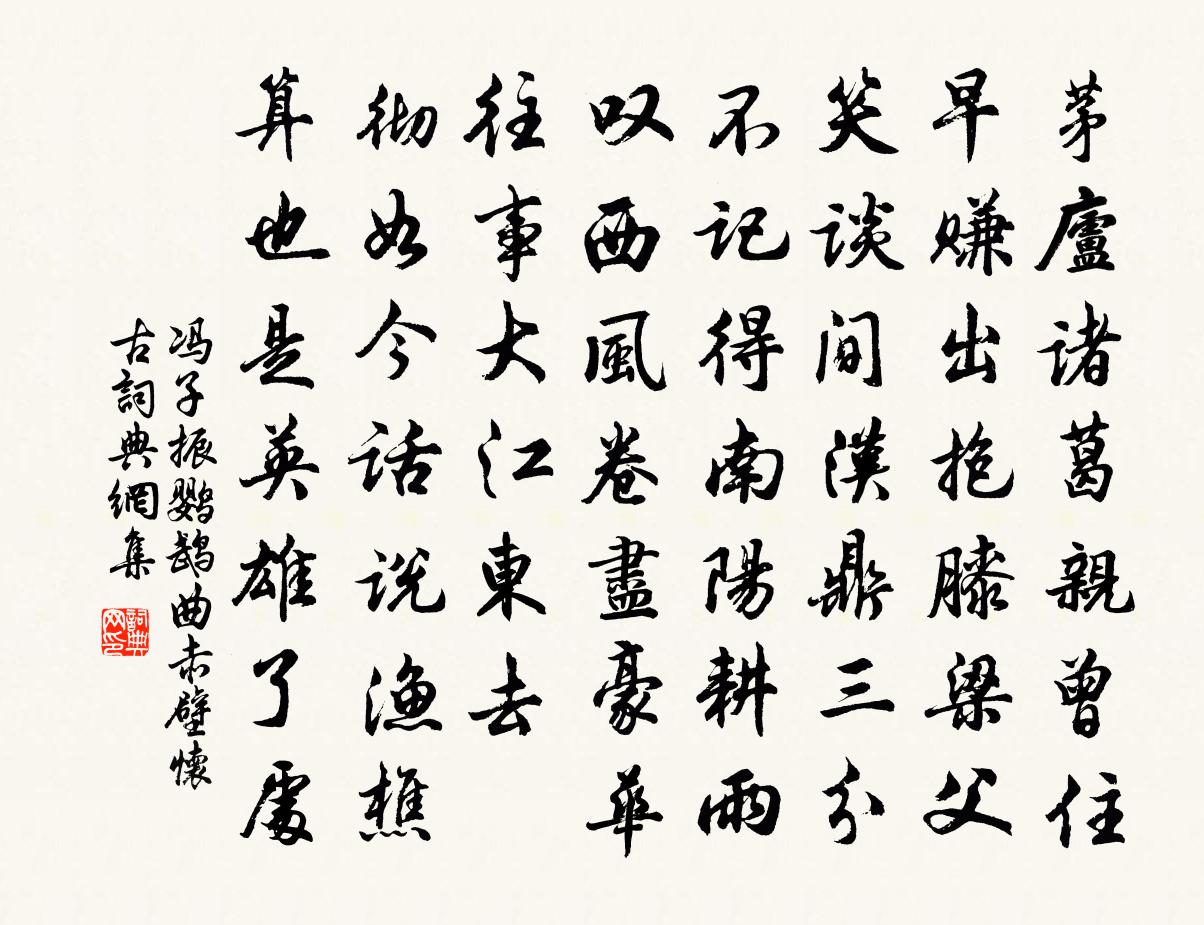 茅廬诸葛親曾住
早赚出抱膝梁父
笑谈间漢鼎三分
不记得南陽耕雨
叹西風卷盡豪華
往事大江東去
彻如今话说渔樵
算也是英雄了處
冯子振鹦鹉曲赤壁懷
古詞典網集
詞典网印